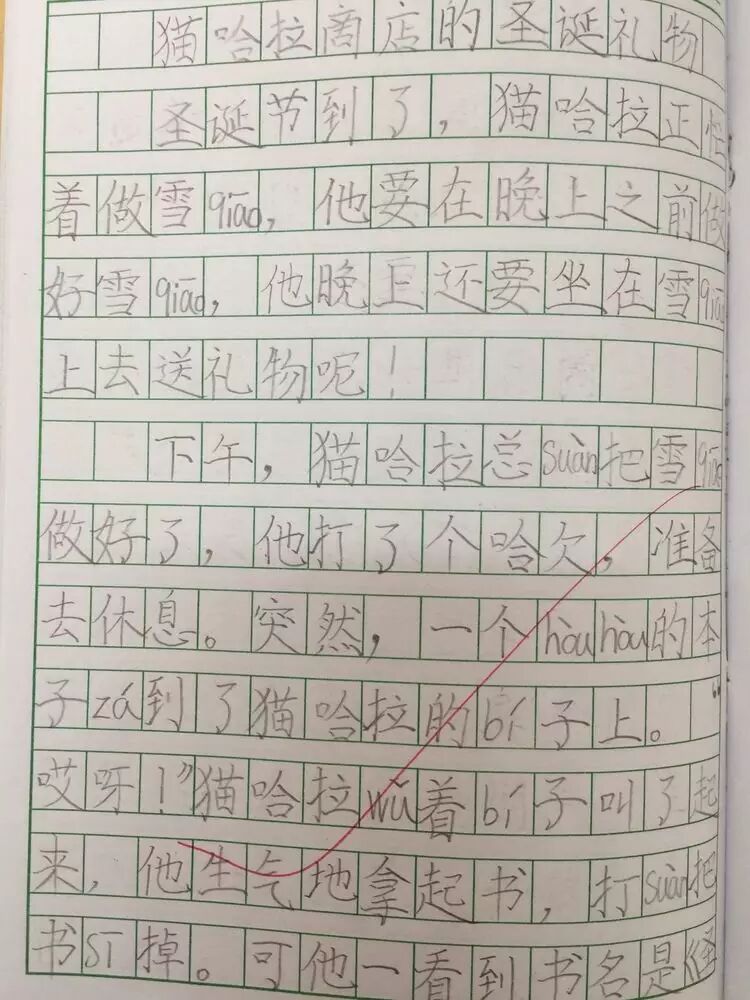 猫哈拉商店的圣诞礼物
圣诞节到了，猫哈拉正忙
着做雪qiāo，他要在晚上之前做
好雪qiāo，他晚上还要坐在雪qiāo
上去送礼物呢！
下午，猫哈拉总suàn把雪qiāo
做好了，他打了个哈欠，准备
去休息。突然，一个hòuhòu的本
子zá到了猫哈拉的bí子上。“
哎呀！”猫哈拉wǔ着bí子叫了起
来，他生气地拿起书，打suàn把
书sī掉。可他一看到书名是《圣